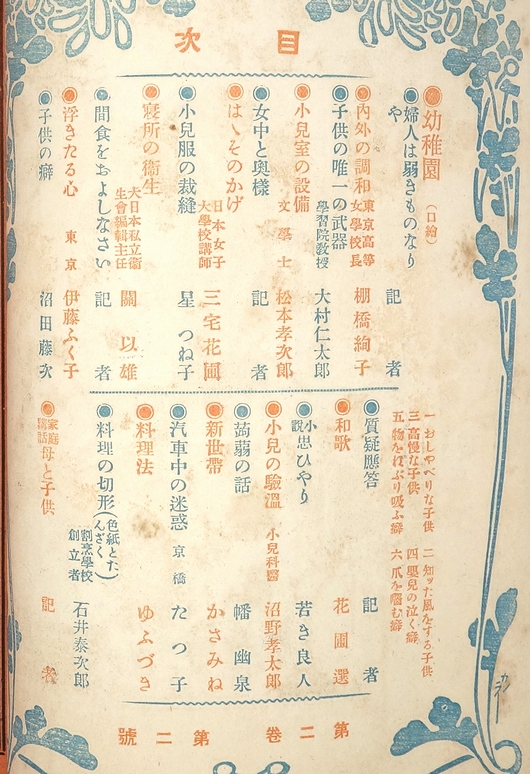 目次
幼稚園（口繪）
婦人は弱きものなりや 記者
内外の調和 東京高等女學校長 棚橋絢子
子供の唯一の武器 學習院教授 大村仁太郎
小兒室の設備 文學士 松本孝次郎
女中と奥樣 記者
はゝそのかげ 日本女子大學校講師 三宅花圃
小兒服の裁縫 星つね子
寢所の衞生 大日本私立衞生會編輯主任 關以雄
間食をおよしなさい 記者
浮きたる心 東京 伊藤ふく子
子供の癖 沼田藤次
一おしやべりな子供 二知ッた風をする子供
三高慢な子供 四嬰兒の泣く癖
五物をねぶり吸ふ癖 六爪を嚙む癖
質疑應答 記者
和歌 花圃選
小説 思ひやり 若き良人
小兒の驗溫 小兒科醫 沼野孝太郎
蒟蒻の話 幡幽泉
新世帶 かさみね
汽車中の迷惑 京橋 たつ子
料理法 ゆふづき
料理の切形（色紙とたんざく） 割烹學校創立者 石井泰次郎
家庭講話 母と子供 記者
第二卷 第二號